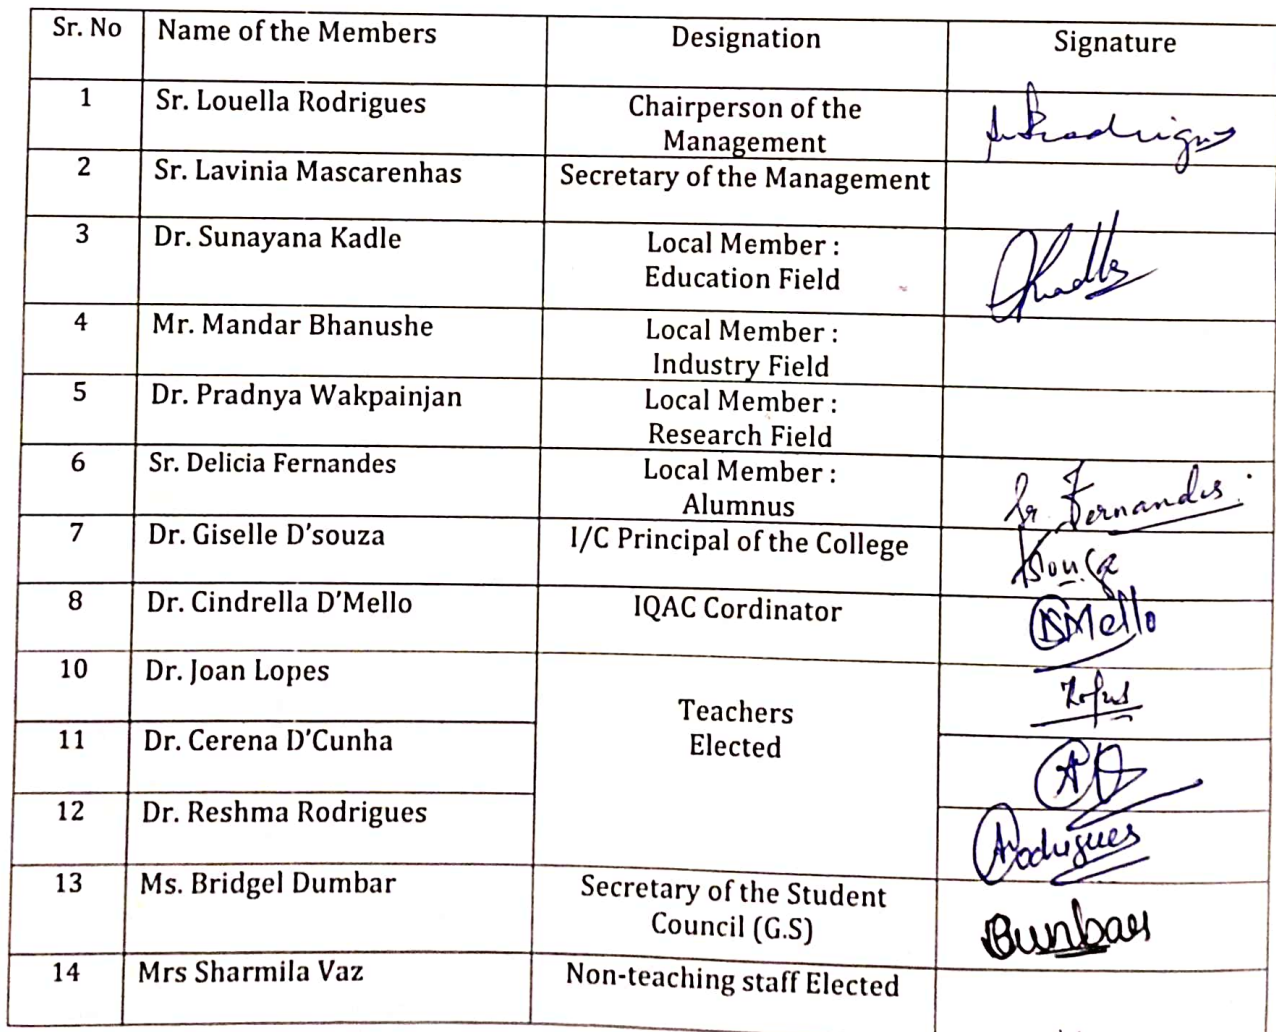 Sr. No Name of the Members Designation Signature
1 Sr. Louella Rodrigues Chairperson of the
Management
2 Sr. Lavinia Mascarenhas Secretary of the Management
3 Dr. Sunayana Kadle Local Member :
Education Field
4 Mr. Mandar Bhanushe Local Member :
Industry Field
5 Dr. Pradnya Wakpainjan Local Member :
Research Field
6 Sr. Delicia Fernandes Local Member :
Alumnus Sr. Fernandes
7 Dr. Giselle D'souza I/C Principal of the College
8 Dr. Cindrella D'Mello IQAC Cordinator DMello
10 Dr. Joan Lopes
Teachers
Elected
11 Dr. Cerena D'Cunha
12 Dr. Reshma Rodrigues Rodrigues
13 Ms. Bridgel Dumbar Secretary of the Student
Council (G.S)
14 Mrs Sharmila Vaz Non-teaching staff Elected